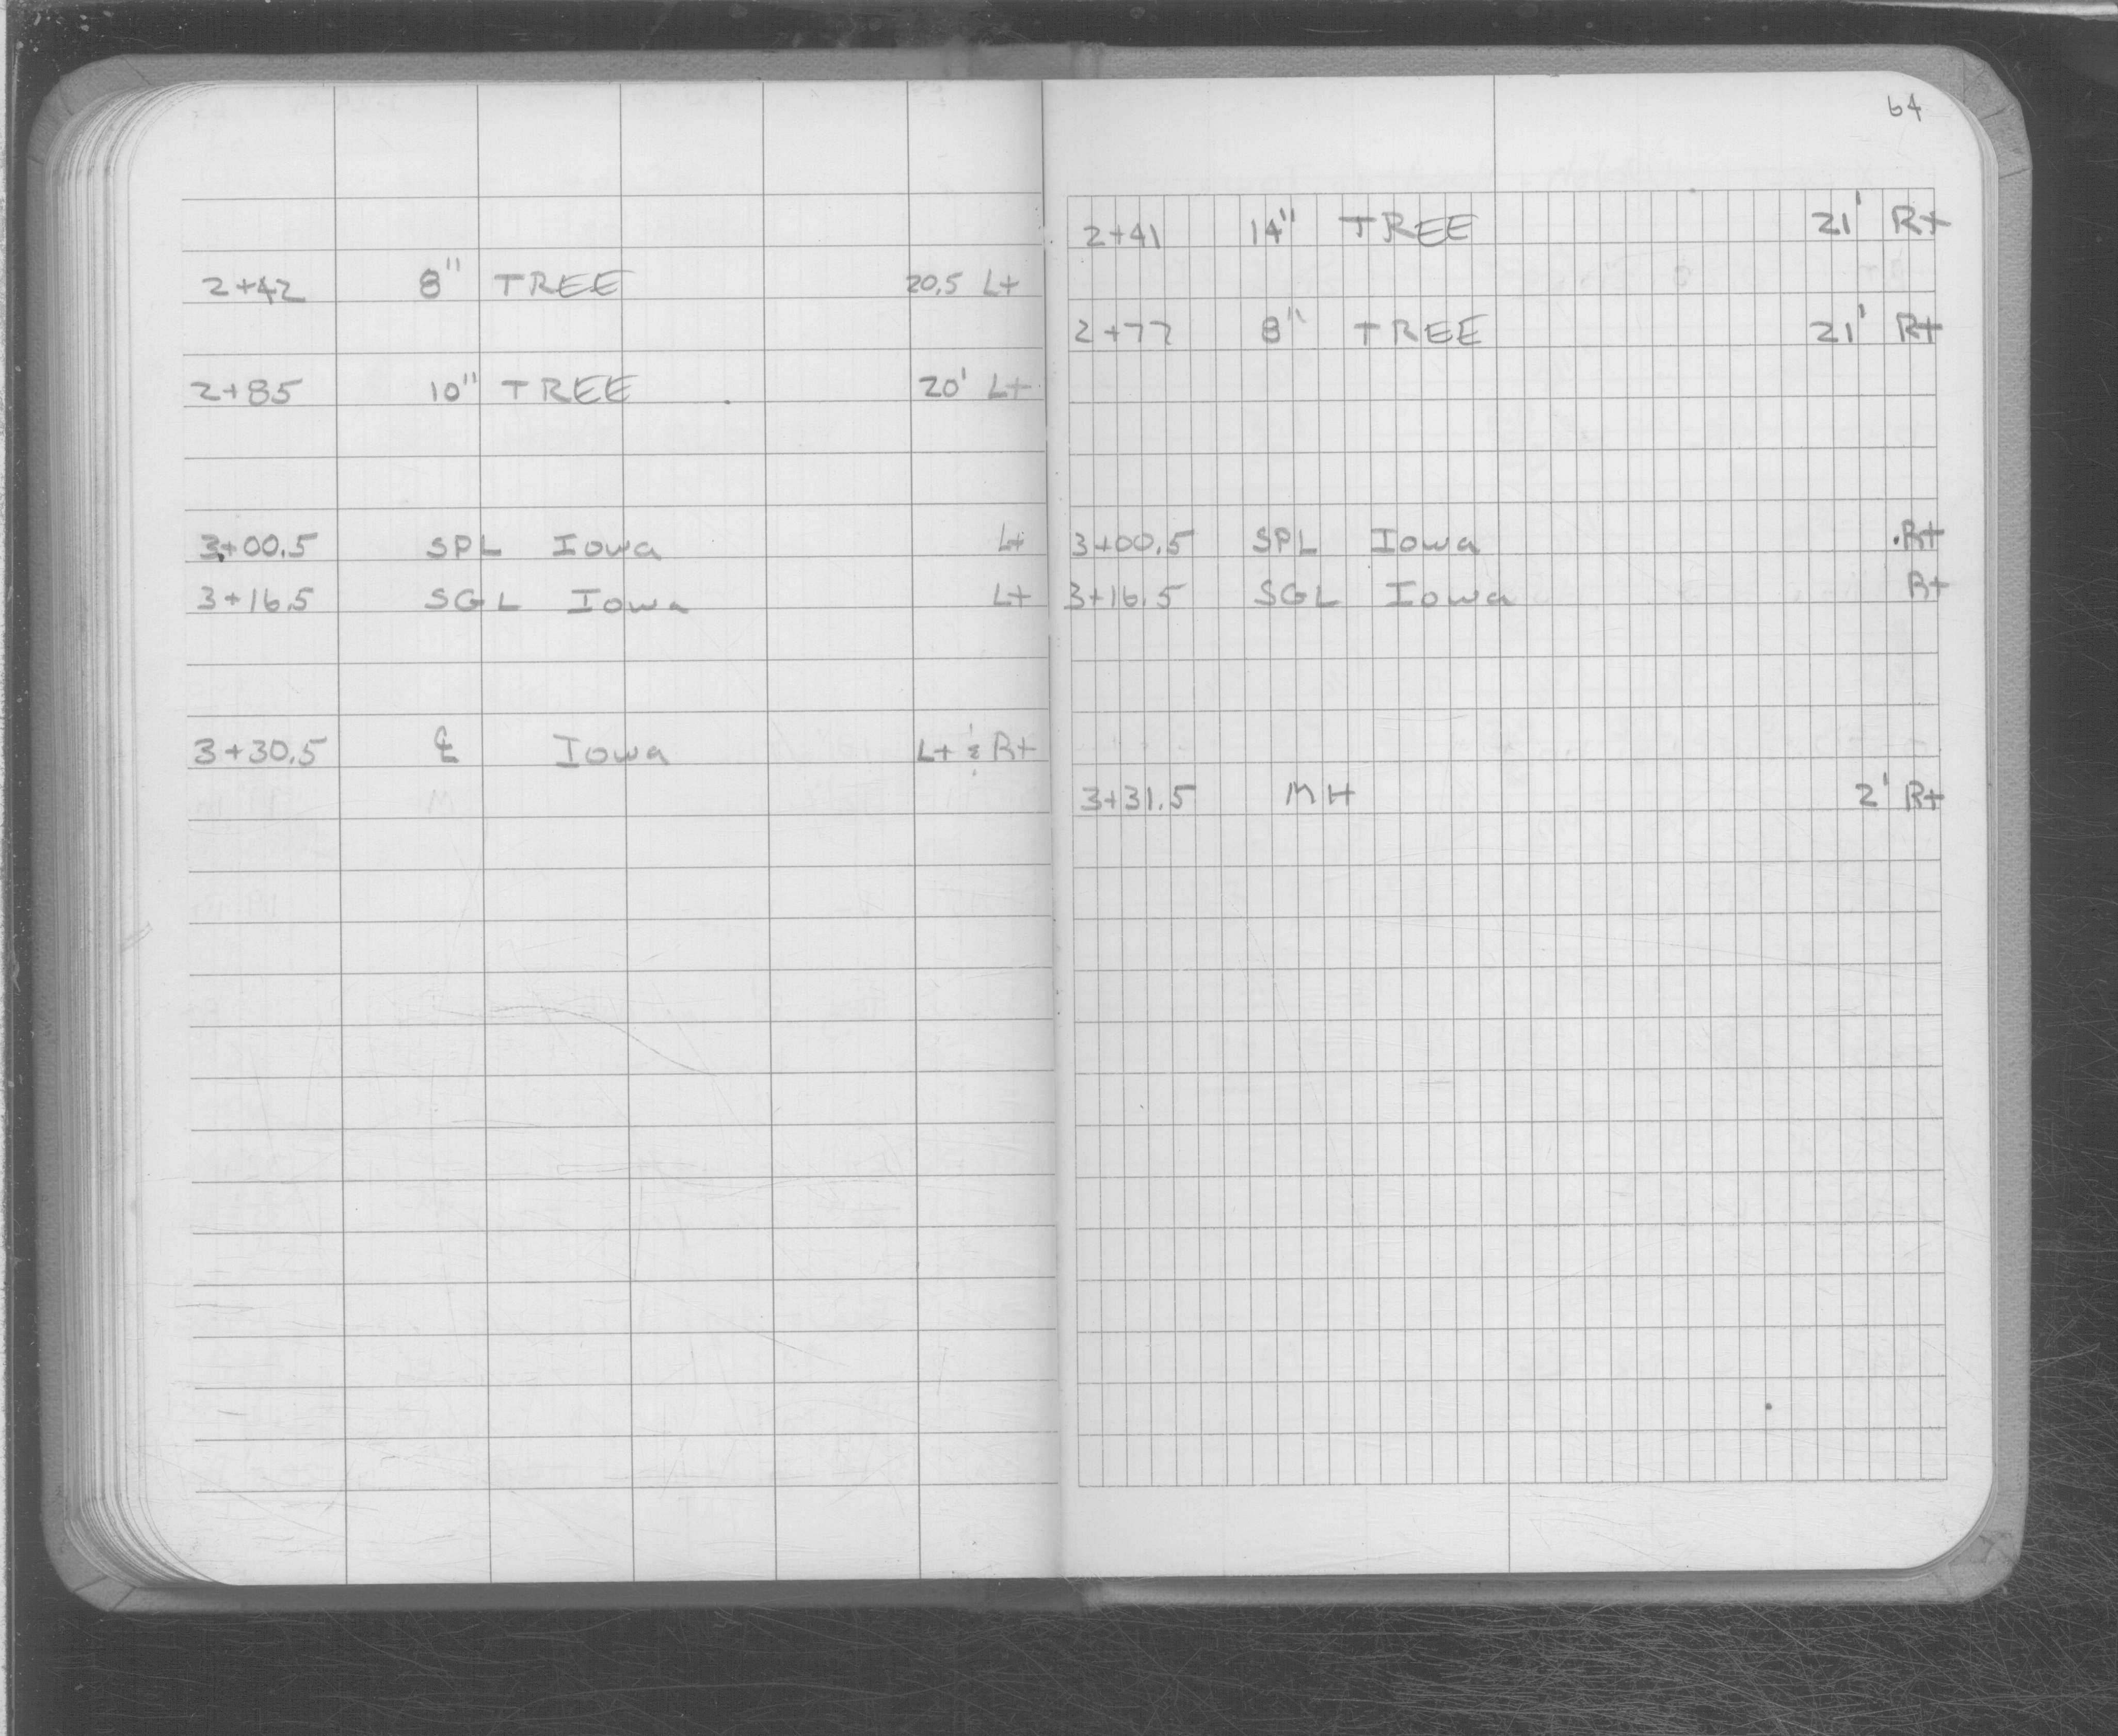 2+42 8" TREE 20.5 Lt
2+85 10" TREE 20' Lt
3+00.5 SPL Iowa Lt
3+16.5 SGL Iowa Lt
3+30.5 ℄ Iowa Lt & Rt
64
2+41 14" TREE 21' Rt
2+77 8" TREE 21' Rt
3+00.5 SPL Iowa Rt
3+16.5 SGL Iowa Rt
3+31.5 MH 2' Rt